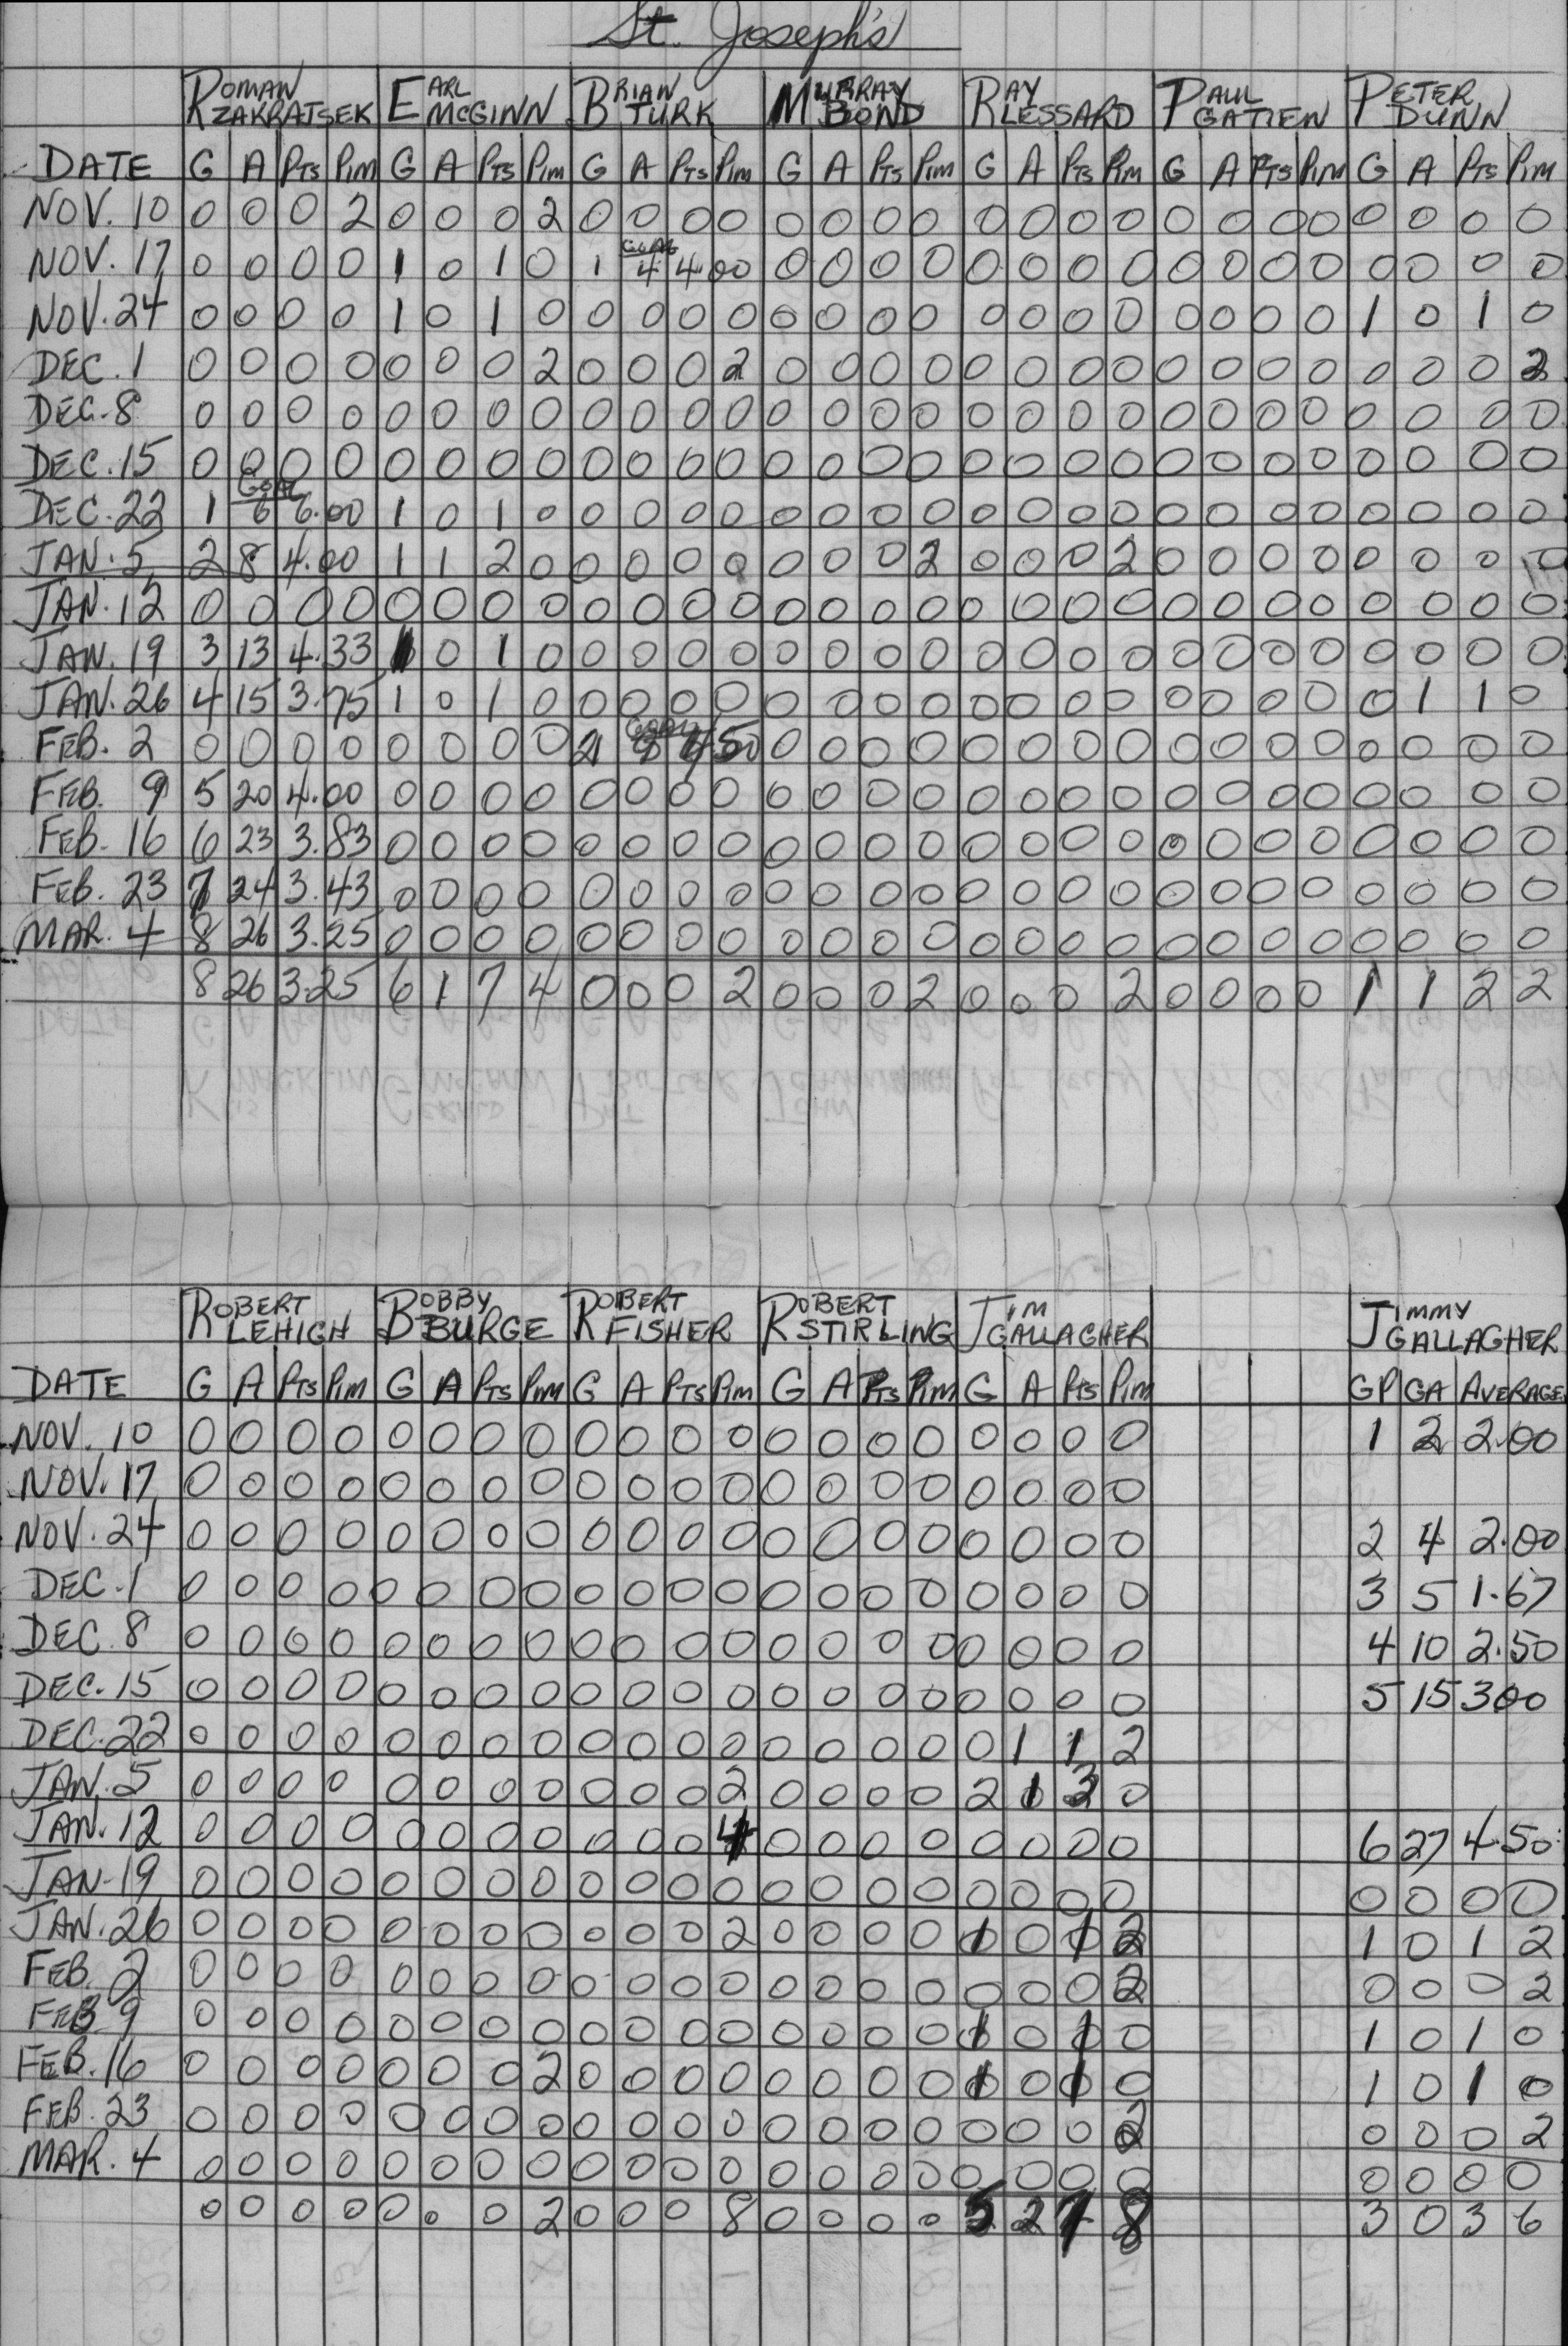 St. Joseph's
ROMAN ZAKRATSEK EARL MCGINN BRIAN TURK MURRAY BOND RAY LESSARD PAUL GATIEN PETER DUNN
DATE G A PTS PIM G A PTS PIM G A PTS PIM G A PTS PIM G A PTS PIM G A PTS PIM G A PTS PIM
NOV. 10 0 0 0 2 0 0 0 2 0 0 0 0 0 0 0 0 0 0 0 0 0 0 0 0 0 0 0 0
NOV. 17 0 0 0 0 1 0 1 0 1 GOAL 4 4.00 0 0 0 0 0 0 0 0 0 0 0 0 0 0 0 0
NOV. 24 0 0 0 0 1 0 1 0 0 0 0 0 0 0 0 0 0 0 0 0 0 0 0 0 1 0 1 0
DEC. 1 0 0 0 0 0 0 0 2 0 0 0 2 0 0 0 0 0 0 0 0 0 0 0 0 0 0 0 2
DEC. 8 0 0 0 0 0 0 0 0 0 0 0 0 0 0 0 0 0 0 0 0 0 0 0 0 0 0 0 0
DEC. 15 0 0 0 0 0 0 0 0 0 0 0 0 0 0 0 0 0 0 0 0 0 0 0 0 0 0 0 0
DEC. 22 1 GOAL 6 6.00 1 0 1 0 0 0 0 0 0 0 0 0 0 0 0 0 0 0 0 0 0 0 0 0
JAN. 5 2 8 4.00 1 1 2 0 0 0 0 0 0 0 0 2 0 0 0 2 0 0 0 0 0 0 0 0
JAN. 12 0 0 0 0 0 0 0 0 0 0 0 0 0 0 0 0 0 0 0 0 0 0 0 0 0 0 0 0
JAN. 19 3 13 4.33 1 0 1 0 0 0 0 0 0 0 0 0 0 0 0 0 0 0 0 0 0 0 0 0
JAN. 26 4 15 3.75 1 0 1 0 0 0 0 0 0 0 0 0 0 0 0 0 0 0 0 0 0 1 1 0
FEB. 2 0 0 0 0 0 0 0 0 2 GOAL 0 0 0 0 0 0 0 0 0 0 0 0 0 0 0 0
FEB. 9 5 20 4.00 0 0 0 0 0 0 0 0 0 0 0 0 0 0 0 0 0 0 0 0 0 0 0 0
FEB. 16 6 23 3.83 0 0 0 0 0 0 0 0 0 0 0 0 0 0 0 0 0 0 0 0 0 0 0 0
FEB. 23 7 24 3.43 0 0 0 0 0 0 0 0 0 0 0 0 0 0 0 0 0 0 0 0 0 0 0 0
MAR. 4 8 26 3.25 0 0 0 0 0 0 0 0 0 0 0 0 0 0 0 0 0 0 0 0 0 0 0 0
8 26 3.25 6 1 7 4 0 0 0 2 0 0 0 2 0 0 0 2 0 0 0 0 1 1 2 2
ROBERT LEHIGH BOBBY BURGE ROBERT FISHER ROBERT STIRLING JIM GALLAGHER JIMMY GALLAGHER
DATE G A PTS PIM G A PTS PIM G A PTS PIM G A PTS PIM G A PTS PIM GP GA AVERAGE
NOV. 10 0 0 0 0 0 0 0 0 0 0 0 0 0 0 0 0 0 0 0 0 1 2 2.00
NOV. 17 0 0 0 0 0 0 0 0 0 0 0 0 0 0 0 0 0 0 0 0
NOV. 24 0 0 0 0 0 0 0 0 0 0 0 0 0 0 0 0 0 0 0 0 2 4 2.00
DEC. 1 0 0 0 0 0 0 0 0 0 0 0 0 0 0 0 0 0 0 0 0 3 5 1.67
DEC. 8 0 0 0 0 0 0 0 0 0 0 0 0 0 0 0 0 0 0 0 0 4 10 2.50
DEC. 15 0 0 0 0 0 0 0 0 0 0 0 0 0 0 0 0 0 0 0 0 5 15 300
DEC. 22 0 0 0 0 0 0 0 0 0 0 0 0 0 0 0 0 0 1 1 2
JAN. 5 0 0 0 0 0 0 0 0 0 0 0 2 0 0 0 0 2 1 3 0
JAN. 12 0 0 0 0 0 0 0 0 0 0 0 4 0 0 0 0 0 0 0 0 6 27 4.50
JAN. 19 0 0 0 0 0 0 0 0 0 0 0 0 0 0 0 0 0 0 0 0 0 0 0 0
JAN. 26 0 0 0 0 0 0 0 0 0 0 0 2 0 0 0 0 1 0 1 2 1 0 1 2
FEB. 2 0 0 0 0 0 0 0 0 0 0 0 0 0 0 0 0 0 0 0 2 0 0 0 2
FEB 9 0 0 0 0 0 0 0 0 0 0 0 0 0 0 0 0 1 0 1 0 1 0 1 0
FEB. 16 0 0 0 0 0 0 0 2 0 0 0 0 0 0 0 0 1 0 1 0 1 0 1 0
FEB. 23 0 0 0 0 0 0 0 0 0 0 0 0 0 0 0 0 0 0 0 2 0 0 0 2
MAR. 4 0 0 0 0 0 0 0 0 0 0 0 0 0 0 0 0 0 0 0 0 0 0 0 0
0 0 0 0 0 0 0 2 0 0 0 8 0 0 0 0 5 2 7 8 3 0 3 6